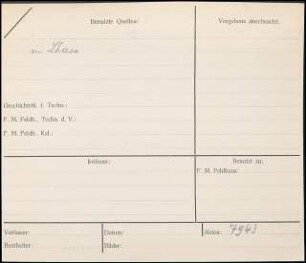 Benutzte Quellen:
Vergebens durchsucht:
Geschichtstl. f. Techn.:
F. M. Feldh., Techn. d. V.:
F. M. Feldh., Kol.:
Benutzt zu:
F. M. Feldhaus:
Verfasser:
Datum:
Akten: 7943
Bearbeiter:
Bilder: